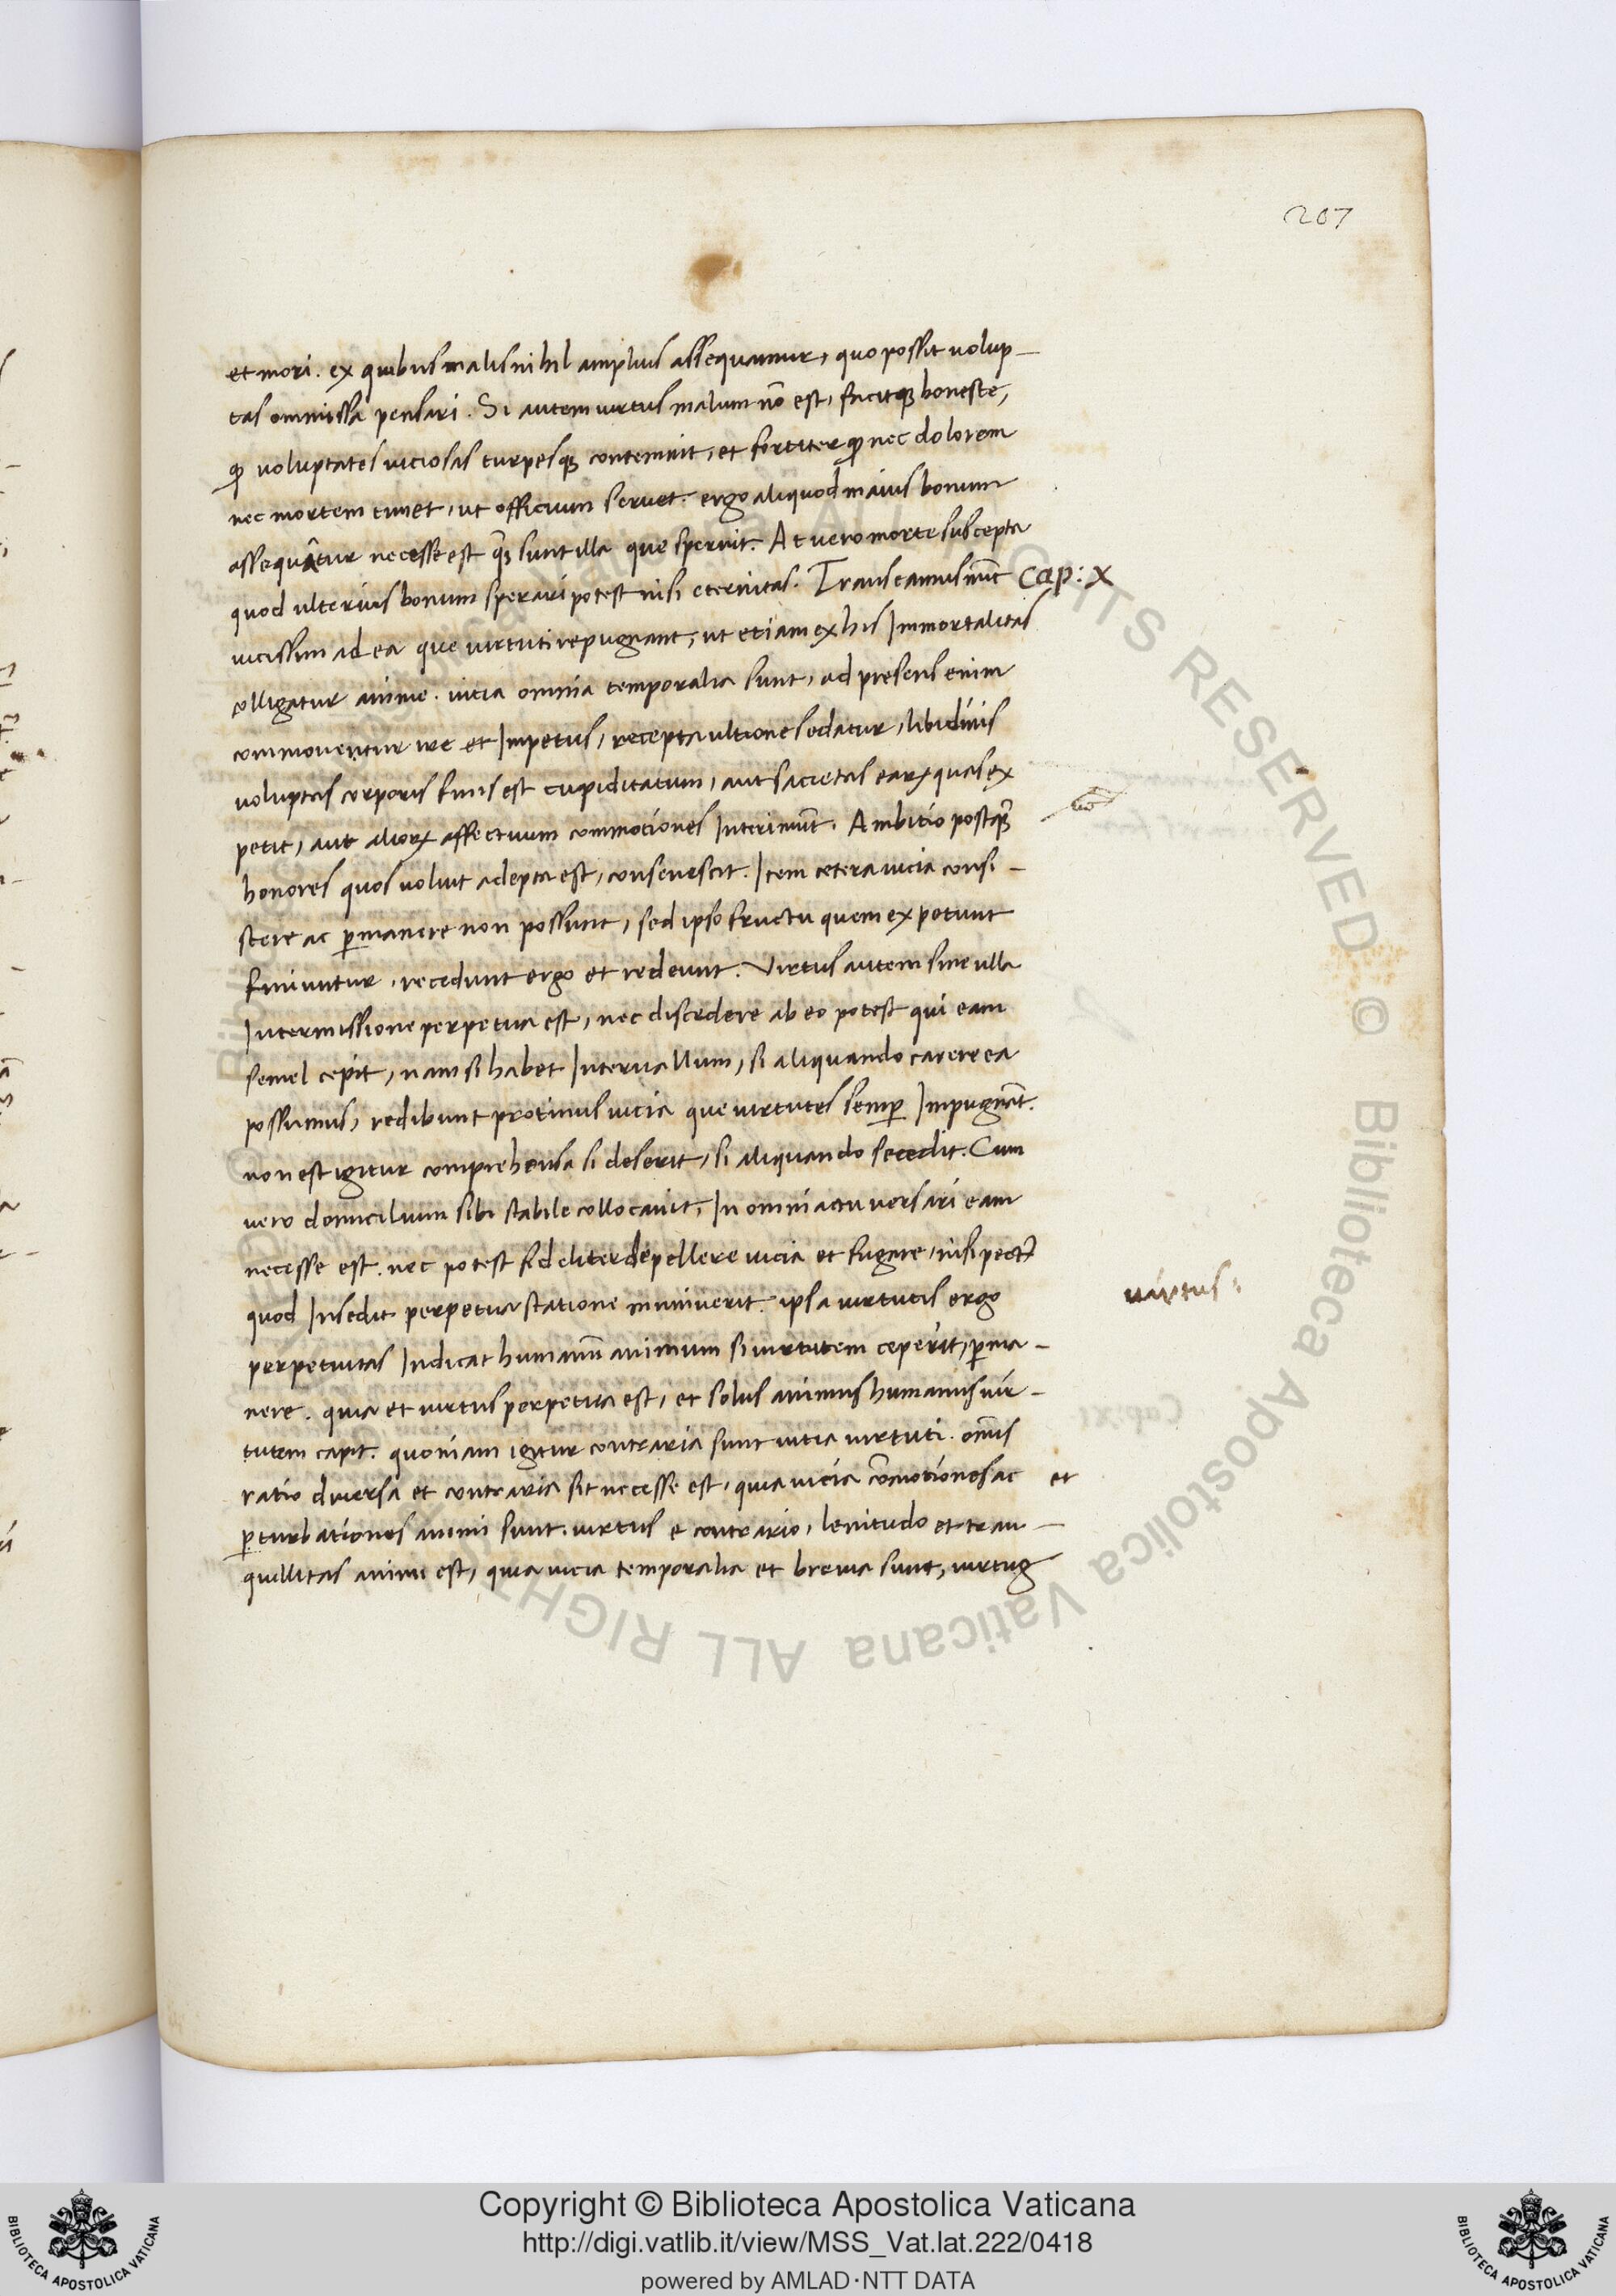 207
et mori. ex quibus malis nihil amplius assequamur, quo possit volup-
tas omnissa pensari. Si autem virtus malum nō est, facitqȝ honeste,
ꝙ voluptates viciosas turpesqȝ contemnit, et fortiter ꝙ nec dolorem
nec mortem timet, ut officium servet. ergo aliquod maius bonum
assequatur necesse est qȝ sunt illa que spernit. At vero morte suscepta
quod ulterius bonum sperari potest nisi eternitas. Transeamus nūc Cap: X
vicissim ad ea que virtuti repugnant, ut etiam ex his Immortalitas
colligatur anime. vitia omnia temporalia sunt, ad presens enim
commoventur ire et Impetus, recepta ultione sedatur, libidinis
voluptas corporis finis est cupiditatum, aut sacietas earꝝ quas ex
petit, aut aliorꝝ affectuum commotiones Interimūt. Ambitio postqȝ
honores quos voluit adepta est, consenescit. Item cetera vicia consi-
stere ac ꝑmanere non possunt, sed ipso fructu quem expetunt
finiuntur, recedunt ergo et redeunt. Virtus autem sine ulla
Intermissione perpetua est, nec discedere ab eo potest qui eam
semel cepit, nam si habet Intervallum, si aliquando carere ea
possumus, redibunt protinus vicia que virtutes semꝑ Impugnāt.
non est igitur comprehensa si deserit, si aliquando secedit. Cum
vero domicilium sibi stabile collocavit, In omni actu versari eam
necesse est. nec potest fideliter depellere vicia et fugare, nisi pect⁹
quod Insedit perpetua statione muniverit. ipsa virtutis ergo
virtus:
perpetuitas Indicat humanū animum si virtutem ceperit, ꝑma-
nere. quia et virtus perpetua est, et solus animus humanus vir-
tutem capit. quoniam igitur contraria sunt vitia virtuti. om̄is
ratio diversa et contraria sit necesse est, quia vicia cōmotiones ac et
ꝑturbationes animi sunt. virtus e contrario, lenitudo et tran-
quillitas animi est, quia vicia temporalia et brevia sunt, virtus
Copyright © Biblioteca Apostolica Vaticana
http://digi.vatlib.it/view/MSS_Vat.lat.222/0418
powered by AMLAD·NTT DATA
BIBLIOTECA APOSTOLICA VATICANA
BIBLIOTECA APOSTOLICA VATICANA